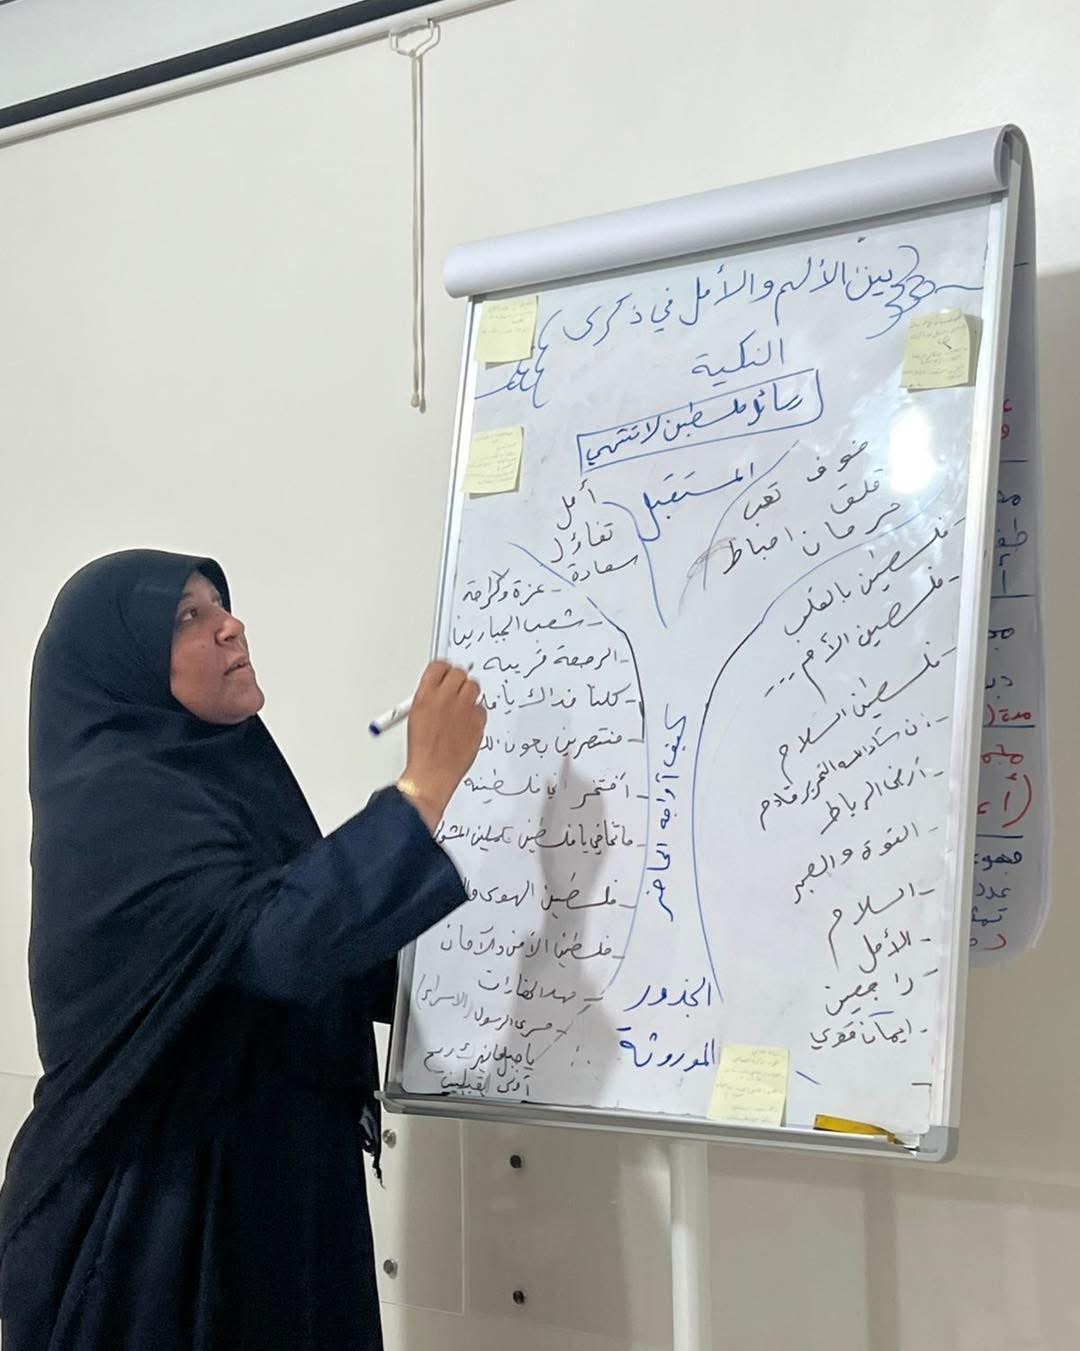 بين الألم والأمل في ذكرى
النكبة
رسائل فلسطين لا تنتهي
المستقبل
أمل
تفاؤل
سعادة
خوف تعب
قلق
حرمان احباط
- عزة وكرامة
- شعب الجبارين
- الرجعة قريبه
- كلنا فداك يا
- منتصرين بعون
- أفتخر أني فلسطينه
- ما تخافي يا فلسطين تكملين
- فلسطين الهوى
- فلسطين الأمن والأمان
- مهد الحضارات
- مسرى الرسول (الاسراء)
يا جبل ما يهزك ريح
أولى القبلتين
كيف أواجه الحاضر
الجذور
الموروثة
- فلسطين بالقلب
- فلسطين الأم ...
- فلسطين السلام
- إن شاء الله التحرير قادم
- أرض الرباط
- القوة والصبر
- السلام
- الأمل
راجعين
- ايمان قوي